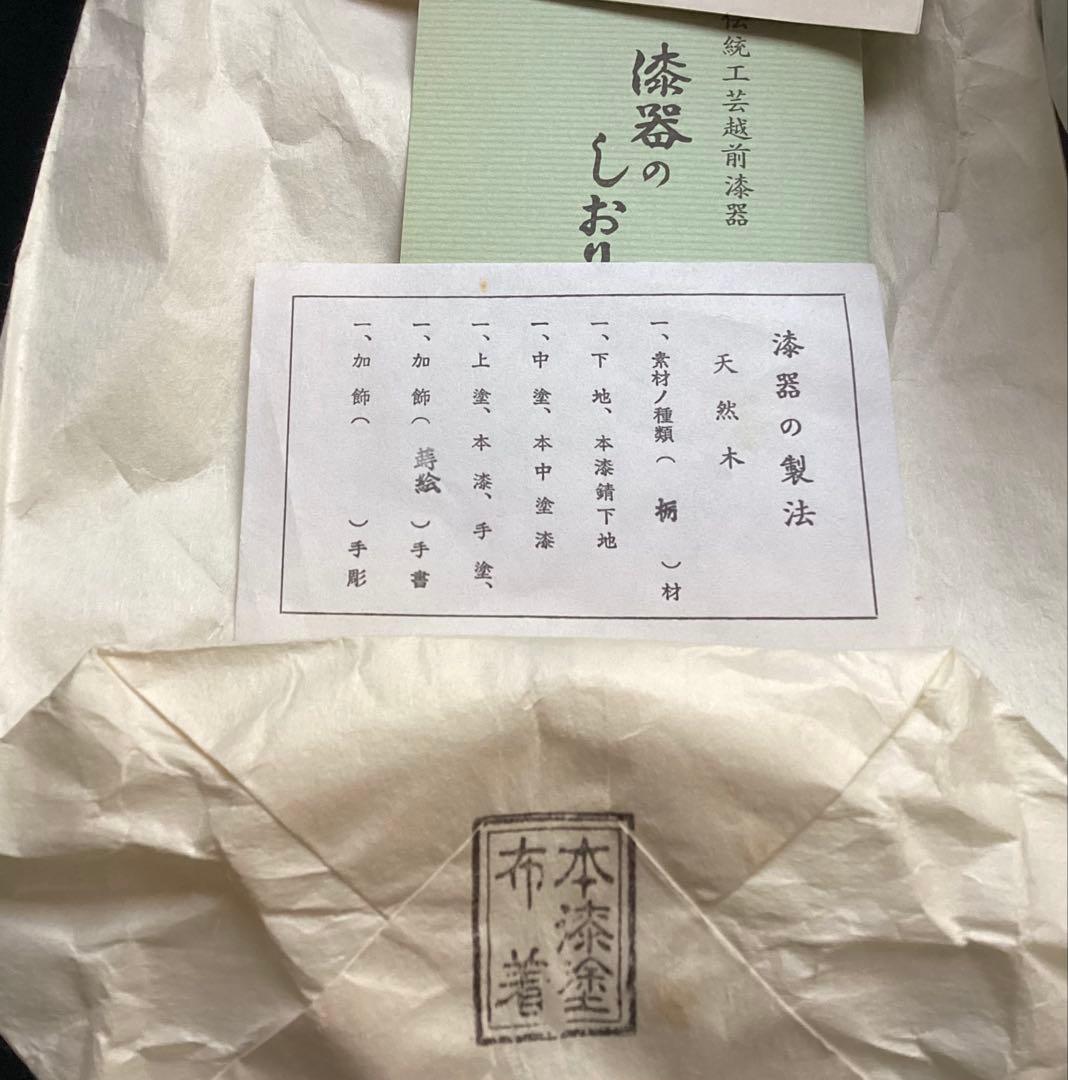 伝統工芸越前漆器
漆器の
しおり
漆器の製法
天然木
一、素材ノ種類（栃）材
一、下地、本漆錆下地
一、中塗、本中塗漆
一、上塗、本漆、手塗、
一、加飾（蒔絵）手書
一、加飾（　）手彫
本漆塗
布着